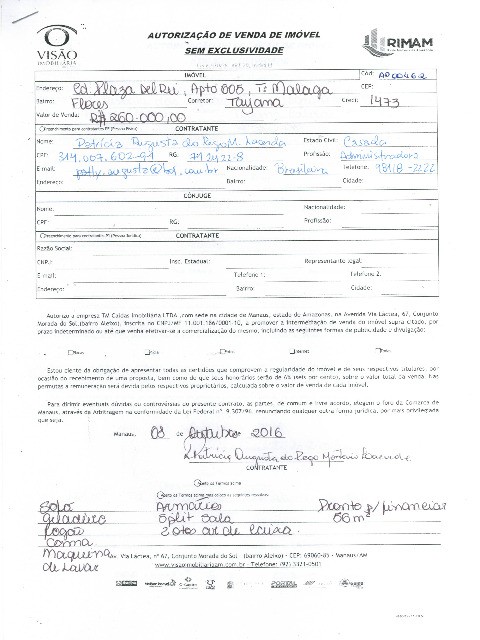 VISÃO
IMOBILIÁRIA
AUTORIZAÇÃO DE VENDA DE IMÓVEL
SEM EXCLUSIVIDADE
RIMAM
IMÓVEL
Cód: AP00462
Endereço: Ed. Plaza Del Rei, Apto 605, T: Malaga
CEP:
Bairro: Flores Corretor: Tayana Creci: 1473
Valor de Venda: R$ 260.000,00
Preenchimento para contratante PF (Pessoa Física) CONTRATANTE
Nome: Patrícia Augusta do Rego M. Lacerda Estado Civil: Casada
CPF: 314.007.602-91 RG: Profissão: Administradora
E.mail: Nacionalidade: Brasileira Telefone:
Endereço: Bairro: Cidade:
CÔNJUGE
Nome: Nacionalidade:
CPF: RG: Profissão:
Preenchimento para contratante PJ (Pessoa Jurídica) CONTRATANTE
Razão Social:
CNPJ: Insc. Estadual: Representante legal:
E-mail: Telefone 1: Telefone 2:
Endereço: Bairro: Cidade:
Autorizo a empresa TM Caldas Imobiliária LTDA., com sede na cidade de Manaus, estado de Amazonas, na Avenida Via Lactea, 67, Conjunto
Morada do Sol, (bairro Aleixo), inscrita no CNPJ/MF 11.001.186/0001-10, a promover a intermediação de venda do imóvel supra citado, por
prazo indeterminado ou até que venha efetivar-se a comercialização do mesmo, incluindo as seguintes formas de publicidade e divulgação:
Estou ciente da obrigação de apresentar todas as certidões que comprovem a regularidade do imóvel e de seus respectivos titulares, por
ocasião do recebimento de uma proposta, bem como de que seus honorários serão de 6% (seis por cento), sobre o valor total da venda. Nas
permutas a remuneração será devida pelos respectivos proprietários, calculada sobre o valor de venda de cada imóvel.
Para dirimir eventuais dúvidas ou controvérsias do presente contrato, as partes, de comum e livre acordo, elegem o foro da Comarca de
Manaus, através de Arbitragem na conformidade da Lei Federal nº 9.307/96, renunciando qualquer outra forma jurídica, por mais privilegiada
que seja.
Manaus, 03 de Outubro 2016
Patrícia Augusta do Rego Monteiro Lacerda
CONTRATANTE
Aceito os Termos acima
Aceito os Termos acima mas
Sofá Armários Pronto p/ financiar
Geladeira Split Sala 56 m²
Fogão
Cama
Maquina
de Lavar
Av. Via Lactea, nº 67, Conjunto Morada do Sol - (bairro Aleixo) - CEP: 69060-085 - Manaus/AM
www.visaoimobiliariaam.com.br - Telefone: (92)